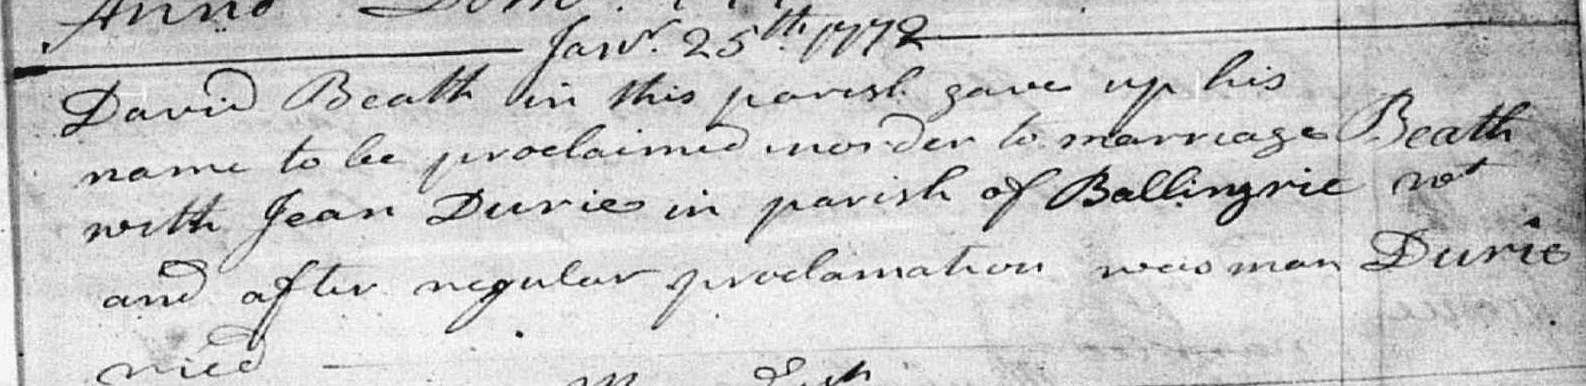 Anno Dom:
Janr. 25th 1772
David Beath in this parish gave up his
name to be proclaimed inorder to marriage Beath
with Jean Durie in parish of Ballingrie wt
and after regular proclamation was mar Durie
ried